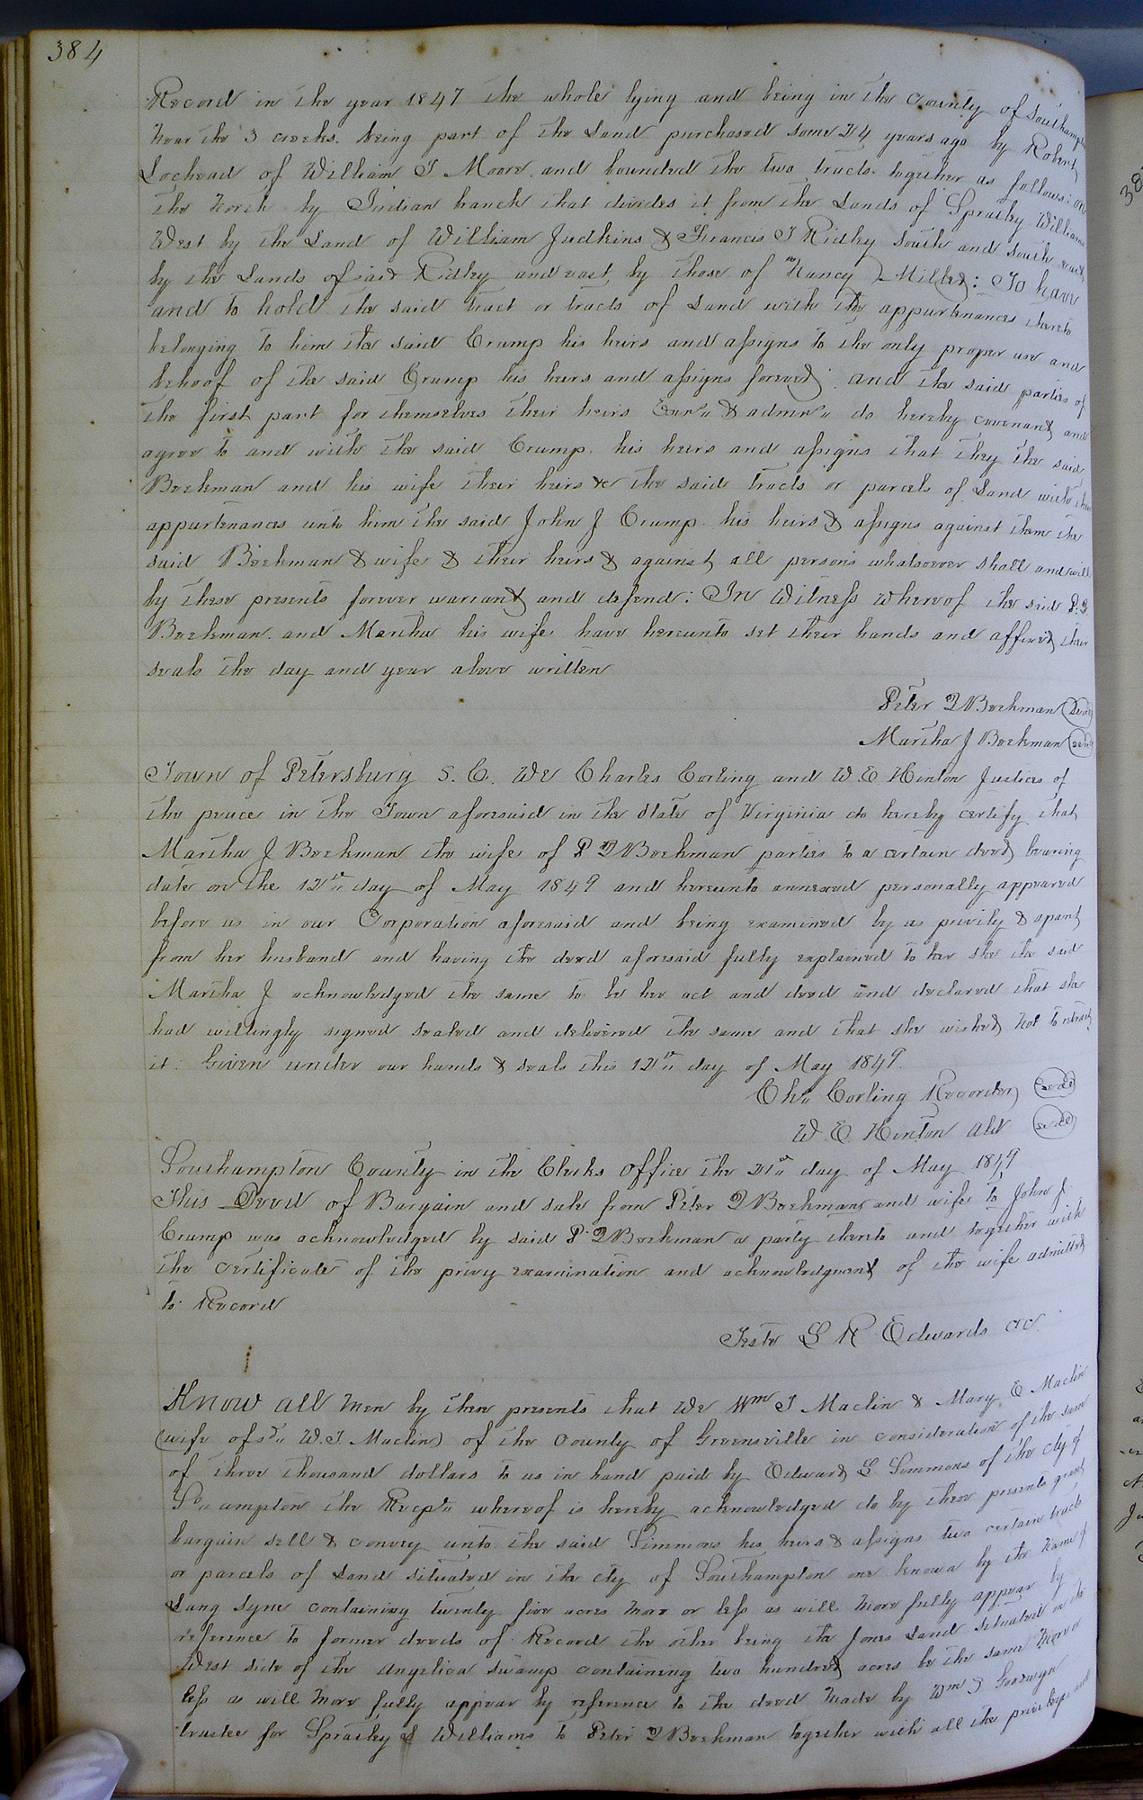 384
Record in the year 1847 the whole lying and being in the County of Southampton
Near the 3 creeks. being part of the Land purchased some 24 years ago by Robert
Lochead of William T Moore and bounded the two tracts together as follows: on
the North by Indian branch that divides it from the Lands of Spratley Williams
West by the Land of William Judkins & Francis T Ridley South and South east
by the Lands of said Ridley and east by those of Nancy Miller: To have
and to hold the said tract or tracts of Land with the appurtenances thereto
belonging to him the said Crump his heirs and assigns to the only proper use and
behoof of the said Crump his heirs and assigns forever: and the said parties of
the first part for themselves their heirs Exrs & admrs do hereby covenant and
agree to and with the said Crump his heirs and assigns that they the said
Beckman and his wife their heirs &c the said tracts or parcels of Land with the
appurtenances unto him the said John J Crump his heirs & assigns against them the
said Beckman & wife & their heirs & against all persons whatsoever shall and will
by these presents forever warrant and defend: In Witness whereof the said P. Q
Beckman and Martha his wife have hereunto set their hands and affixed their
seals the day and year above written
Peter Q Beckman Seal
Martha J Beckman seal
Town of Petersburg S. C. We Charles Corling and W. E. Hinton Justices of
the peace in the Town aforesaid in the State of Virginia do hereby certify that
Martha J Beckman the wife of P Q Beckman parties to a certain deed bearing
date on the 12th day of May 1849 and hereunto annexed personally appeared
before us in our Corporation aforesaid and being examined by us privily & apart
from her husband and having the deed aforesaid fully explained to her she the said
Martha J acknowledged the same to be her act and deed and declared that she
had willingly signed sealed and delivered the same and that she wished not to retract
it. Given under our hands & seals this 12th day of May 1849.
Chs Corling Recorder seal
W E Hinton Ald seal
Southampton County in the Clerks Office the 21st day of May 1849
This Deed of Bargain and sale from Peter Q Beckman and wife to John J
Crump was acknowledged by said P Q Beckman a party thereto and together with
the certificate of the privy examination and acknowledgment of the wife admitted
to Record
Teste L R Edwards CC
Know all Men by these presents that We Wm T Maclin & Mary E Maclin
(wife of sd W. T. Maclin) of the County of Greensville in consideration of the sum
of three thousand dollars to us in hand paid by Edward L Simmons of the cty of
So ampton the Recpt whereof is hereby acknowledged do by these presents grant
bargain sell & convey unto the said Simmons his heirs & assigns two certain tracts
or parcels of Land situated in the cty of Southampton one known by the Name of
Lang Syne containing twenty five acres More or less as will More fully appear by
reference to former deeds of Record the other being the Jones Land situated on the
West side of the Angelica swamp containing two hundred acres be the same More or
less as will More fully appear by reference to the deed Made by Wm D Goodwyn
trustee for Spratley Williams to Peter Q Beckman together with all the privileges and